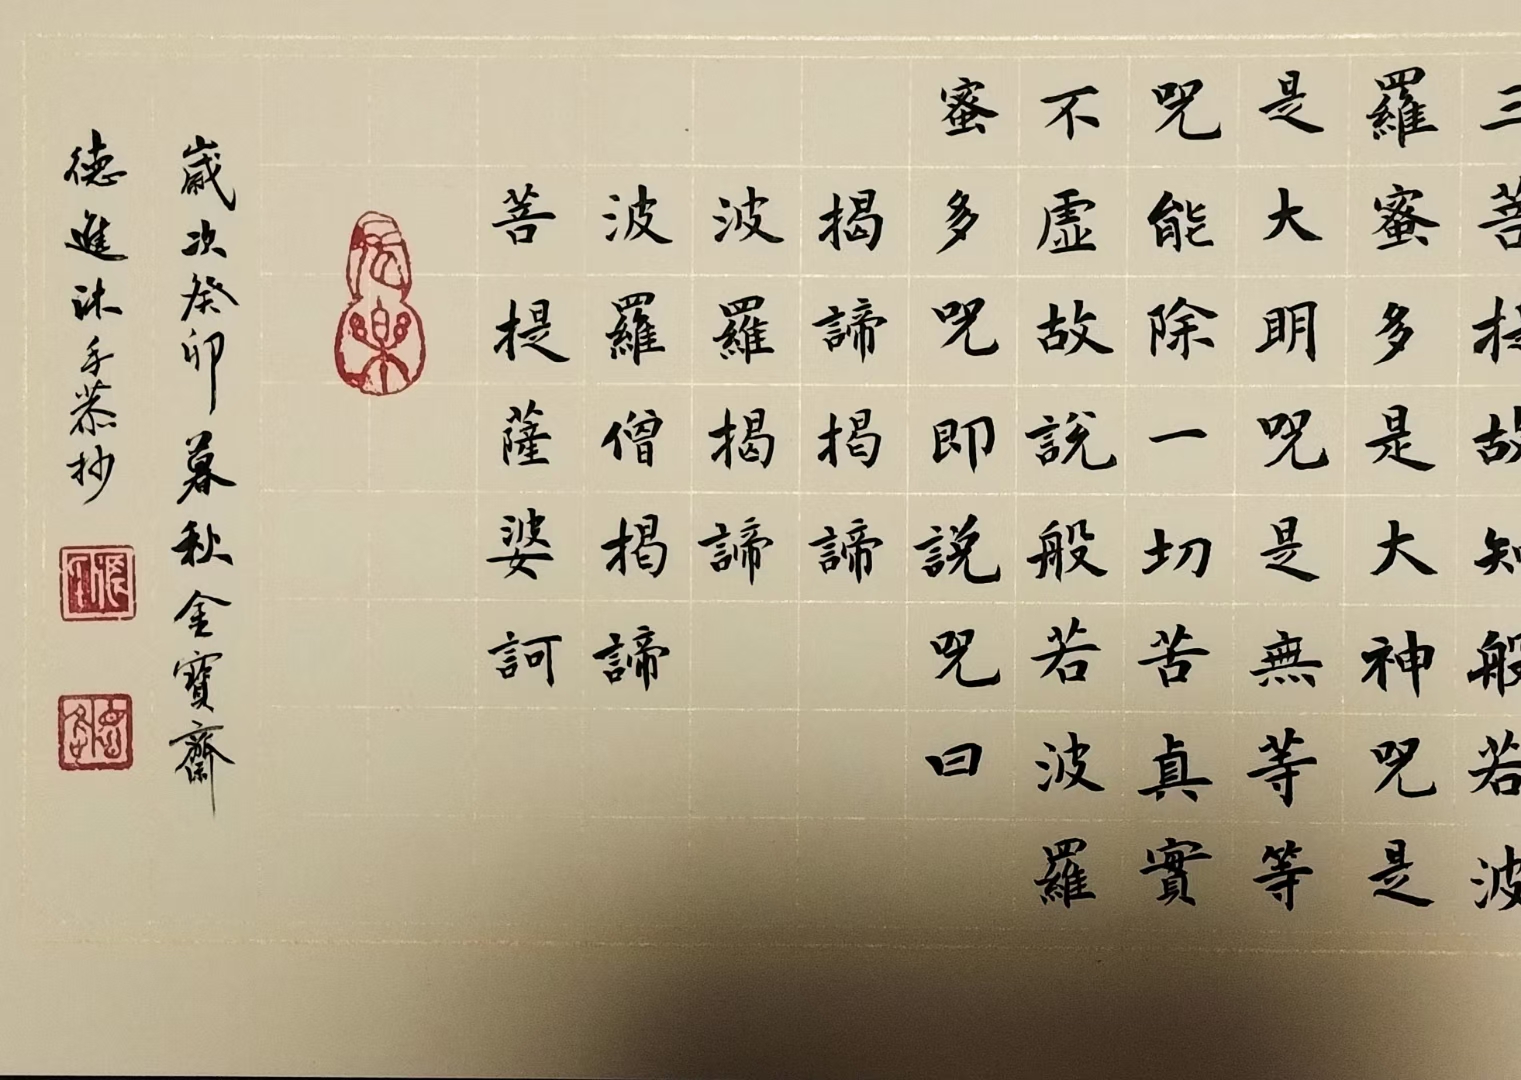 三菩提故知般若波
羅蜜多是大神咒是
是大明咒是無等等
咒能除一切苦真實
不虛故說般若波羅
蜜多咒即說咒曰
揭諦揭諦
波羅揭諦
波羅僧揭諦
菩提薩婆訶
歲次癸卯暮秋金寶齋
德進沐手恭抄